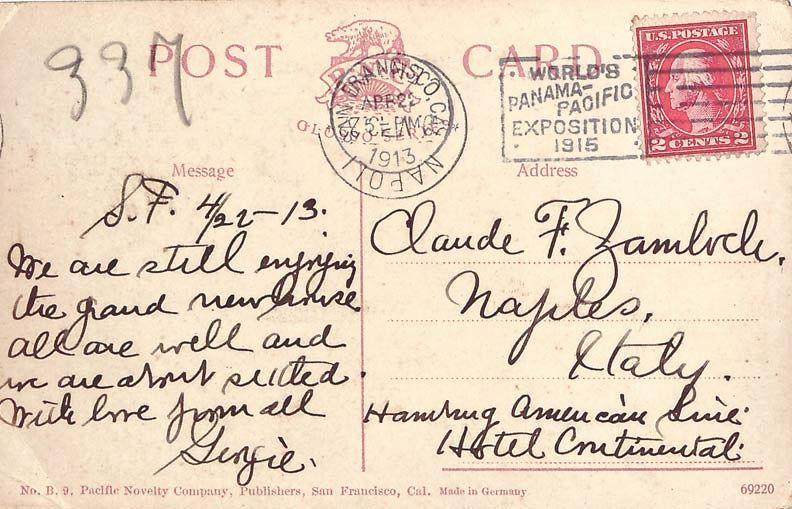 337
POST CARD
SAN FRANCISCO, CAL.
APR 22
7 30 PM
1913
NAPOLI
WORLD'S
PANAMA-
PACIFIC
EXPOSITION
1915
U.S. POSTAGE
2 CENTS 2
Message
Address
S.F. 4/22-13.
We are still enjoying
the grand new house
all are well and
we are about settled.
With love from all
Georgie.
Claude F. Zamloch.
Naples,
Italy.
Hamburg American Line
Hotel Continental
No. B. 9. Pacific Novelty Company, Publishers, San Francisco, Cal. Made in Germany
69220